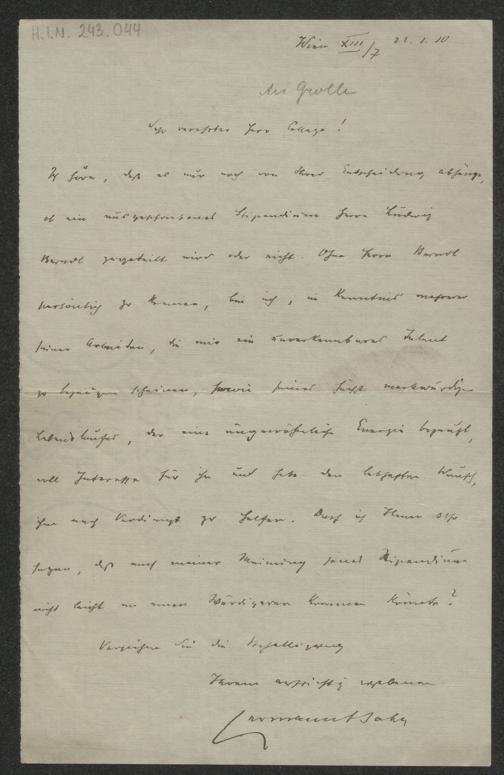 H.I.N. 243.044
Wien XIII/7 22. 2. 10
An Grolle
Sehr verehrter Herr College!
Ich höre, daß es nur noch von Ihrer Entscheidung abhänge,
ob ein ausgeschriebenes Stipendium Herrn Ludwig
Berndl zugeteilt wird oder nicht. Ohne Herrn Berndl
persönlich zu kennen, bin ich, in Kenntnis mehrerer
seiner Arbeiten, die mir ein unverkennbares Talent
zu bezeugen scheinen, sowie seines höchst merkwürdigen
Lebenslaufes, der eine ungewöhnliche Energie bezeugt,
voll Interesse für ihn und habe den lebhaften Wunsch,
ihm nach Verdienst zu helfen. Darf ich Ihnen also
sagen, daß nach meiner Meinung jenes Stipendium
nicht leicht an einen Würdigeren kommen könnte?
Verzeihen Sie die Behelligung
Ihrem aufrichtig ergebenen
Hermann Bahr